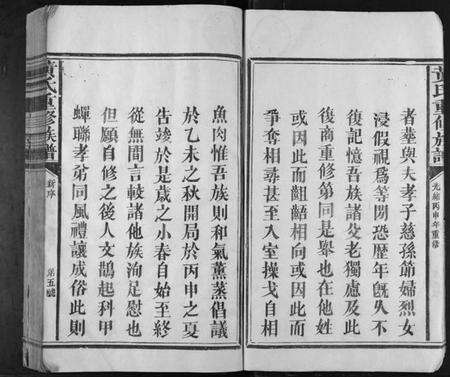 黃氏重修族譜
光緒丙申年重修
者塋與夫孝子慈孫節婦烈女
浸假視為等閒恐歷年旣久不
復記憶吾族諸父老獨慮及此
復商重修第同是舉也在他姓
或因此而齟齬相向或因此而
爭奪相尋甚至入室操戈自相
魚肉惟吾族則和氣薰蒸倡議
於乙未之秋開局於丙申之夏
告竣於是歲之小春自始至終
從無間言較諸他族洵足慰也
但願自修之後人文鵲起科甲
蟬聯孝弟同風禮讓成俗此則
黃氏重修族譜
新序
第五號